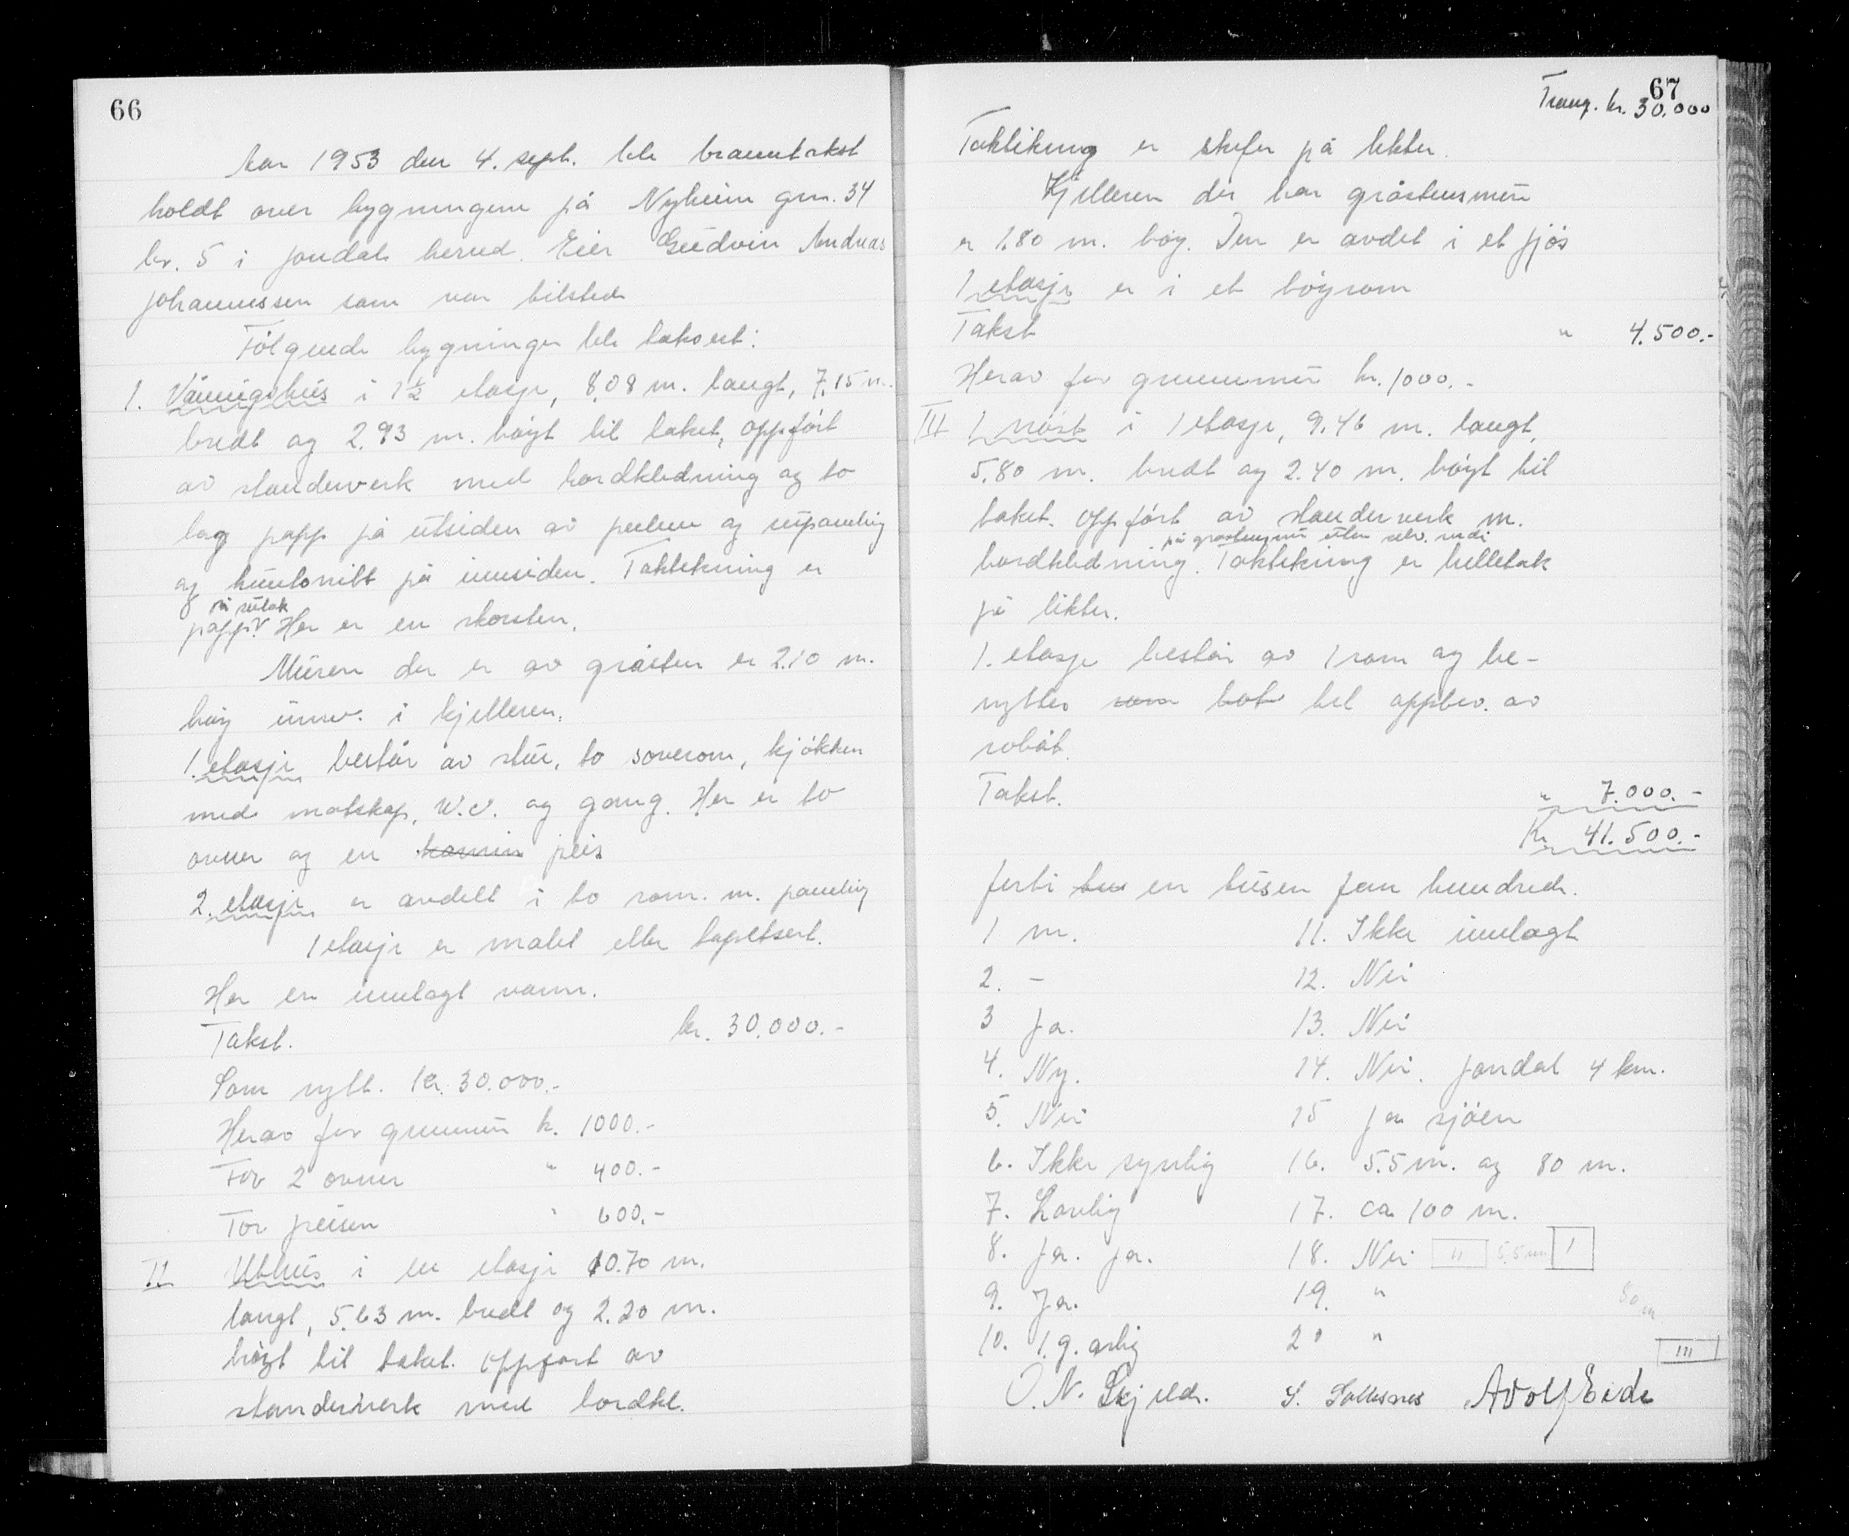 66
Aar 1953 den 4. sept. ble branntakst
holdt over bygningene på Nyheim gnr. 34
br. 5 i Jondal herred. Eier Gudvin Andreas
Johannessen som var tilstede
Følgende bygninger ble taksert:
1. Våningshus i 1½ etasje, 8,08 m. langt, 7,15 m.
bredt og 2.93 m. høgt til taket, oppført
av standerverk med bordkledning og to
lag papp på utsiden av perlene og rupaneling
og huntonitt på innsiden. Taktekning er
på sutak
papp. Her er en skorsten.
Muren der er av gråsten er 2.10 m.
høg innv. i kjelleren.
1. etasje består av stue, to soverom, kjøkken
med matskap, W.C. og gang. Her er to
ovner og en kamin peis
2. etasje er avdelt i to rom. m. paneling
1 etasje er malet eller tapetsert.
Her er innlagt vann.
Takst. kr. 30.000.-
Som nytt. kr. 30.000.-
Herav for grunnmur k. 1000.-
For 2 ovner " 400.-
For peisen " 600.-
II Uthus i en etasje 10.70 m.
langt, 5,63 m. bredt og 2.20 m.
høgt til taket. Oppført av
standerverk med bordkl.
67
Trang. kr. 30.000
Taktekning er skifer på lekter.
Kjelleren der har gråstensmur
er 1.80 m. høg. Den er avdet i et fjøs
1 etasje er i et høyrom
Takst " 4.500.-
Herav for grunnmur kr. 1000.-
III 1 nøst i 1 etasje, 9.46 m. langt,
5,80 m. bredt og 2.40 m. høgt til
taket. Oppført av standerverk m.
på gråstensmur uten selv. verdi
bordkledning. Taktekning er helletak
på lekter.
1. etasje består av 1 rom og be-
nyttes som båt til oppbev. av
robåt.
Takst. " 7.000.-
Kr 41.500.-
førti tus en tusen fem hundrede.
1 m.
2. -
3 Ja.
4. Ny.
5. Nei
6. Ikke synlig
7. Lovlig
8. Ja. Ja.
9. Ja.
10. 1.g. årlig
11. Ikke innlagt
12. Nei
13. Nei
14. Nei. Jondal 4 km.
15 Ja sjøen
16. 5.5 m. og 80 m.
17. ca 100 m.
18. Nei II 5,5 m I
19. "
80 m
20 "
III
O. N. Skjelde. S. Solesnes Adolf Eide